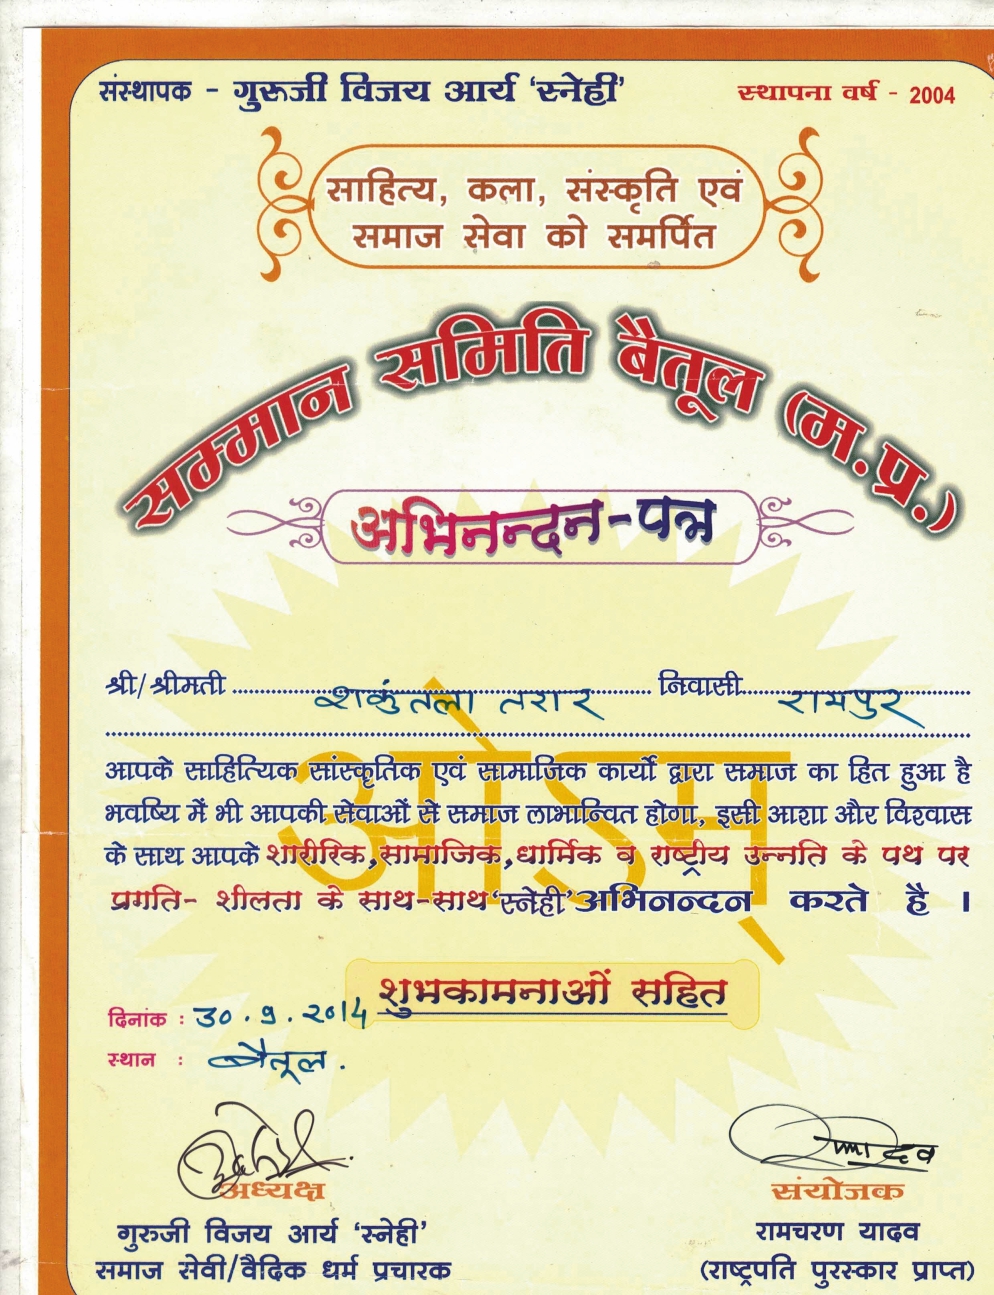 संस्थापक - गुरूजी विजय आर्य 'स्नेही'
स्थापना वर्ष - 2004
साहित्य, कला, संस्कृति एवं
समाज सेवा को समर्पित
सम्मान समिति बैतूल (म.प्र.)
अभिनन्दन-पत्र
श्री/श्रीमती शकुंतला तरार निवासी रायपुर
आपके साहित्यिक सांस्कृतिक एवं सामाजिक कार्यो द्वारा समाज का हित हुआ है
भवष्यि में भी आपकी सेवाओं से समाज लाभान्वित होगा, इसी आशा और विश्वास
के साथ आपके शारीरिक,सामाजिक,धार्मिक व राष्ट्रीय उन्नति के पथ पर
प्रगति- शीलता के साथ-साथ 'स्नेही' अभिनन्दन करते है ।
ओ३म्
शुभकामनाओं सहित
दिनांक : 30.9.2014
स्थान : बैतूल.
अध्यक्ष
संयोजक
गुरूजी विजय आर्य 'स्नेही'
रामचरण यादव
समाज सेवी/वैदिक धर्म प्रचारक
(राष्ट्रपति पुरस्कार प्राप्त)